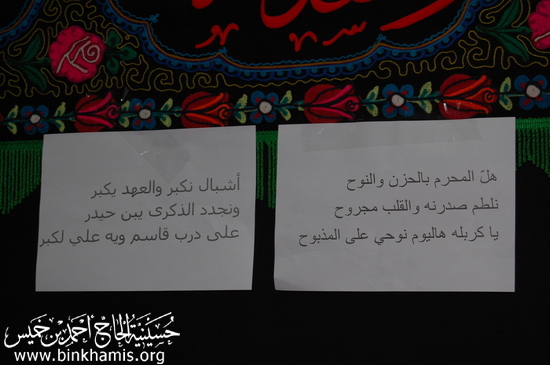 هلّ المحرم بالحزن والنوح
نلطم صدرنه والقلب مجروح
يا كربله هاليوم نوحي على المذبوح
أشبال نكبر والعهد يكبر
ونجدد الذكرى يبن حيدر
على درب قاسم ويه علي لكبر
حسينية الحاج أحمد بن خميس
www.binkhamis.org